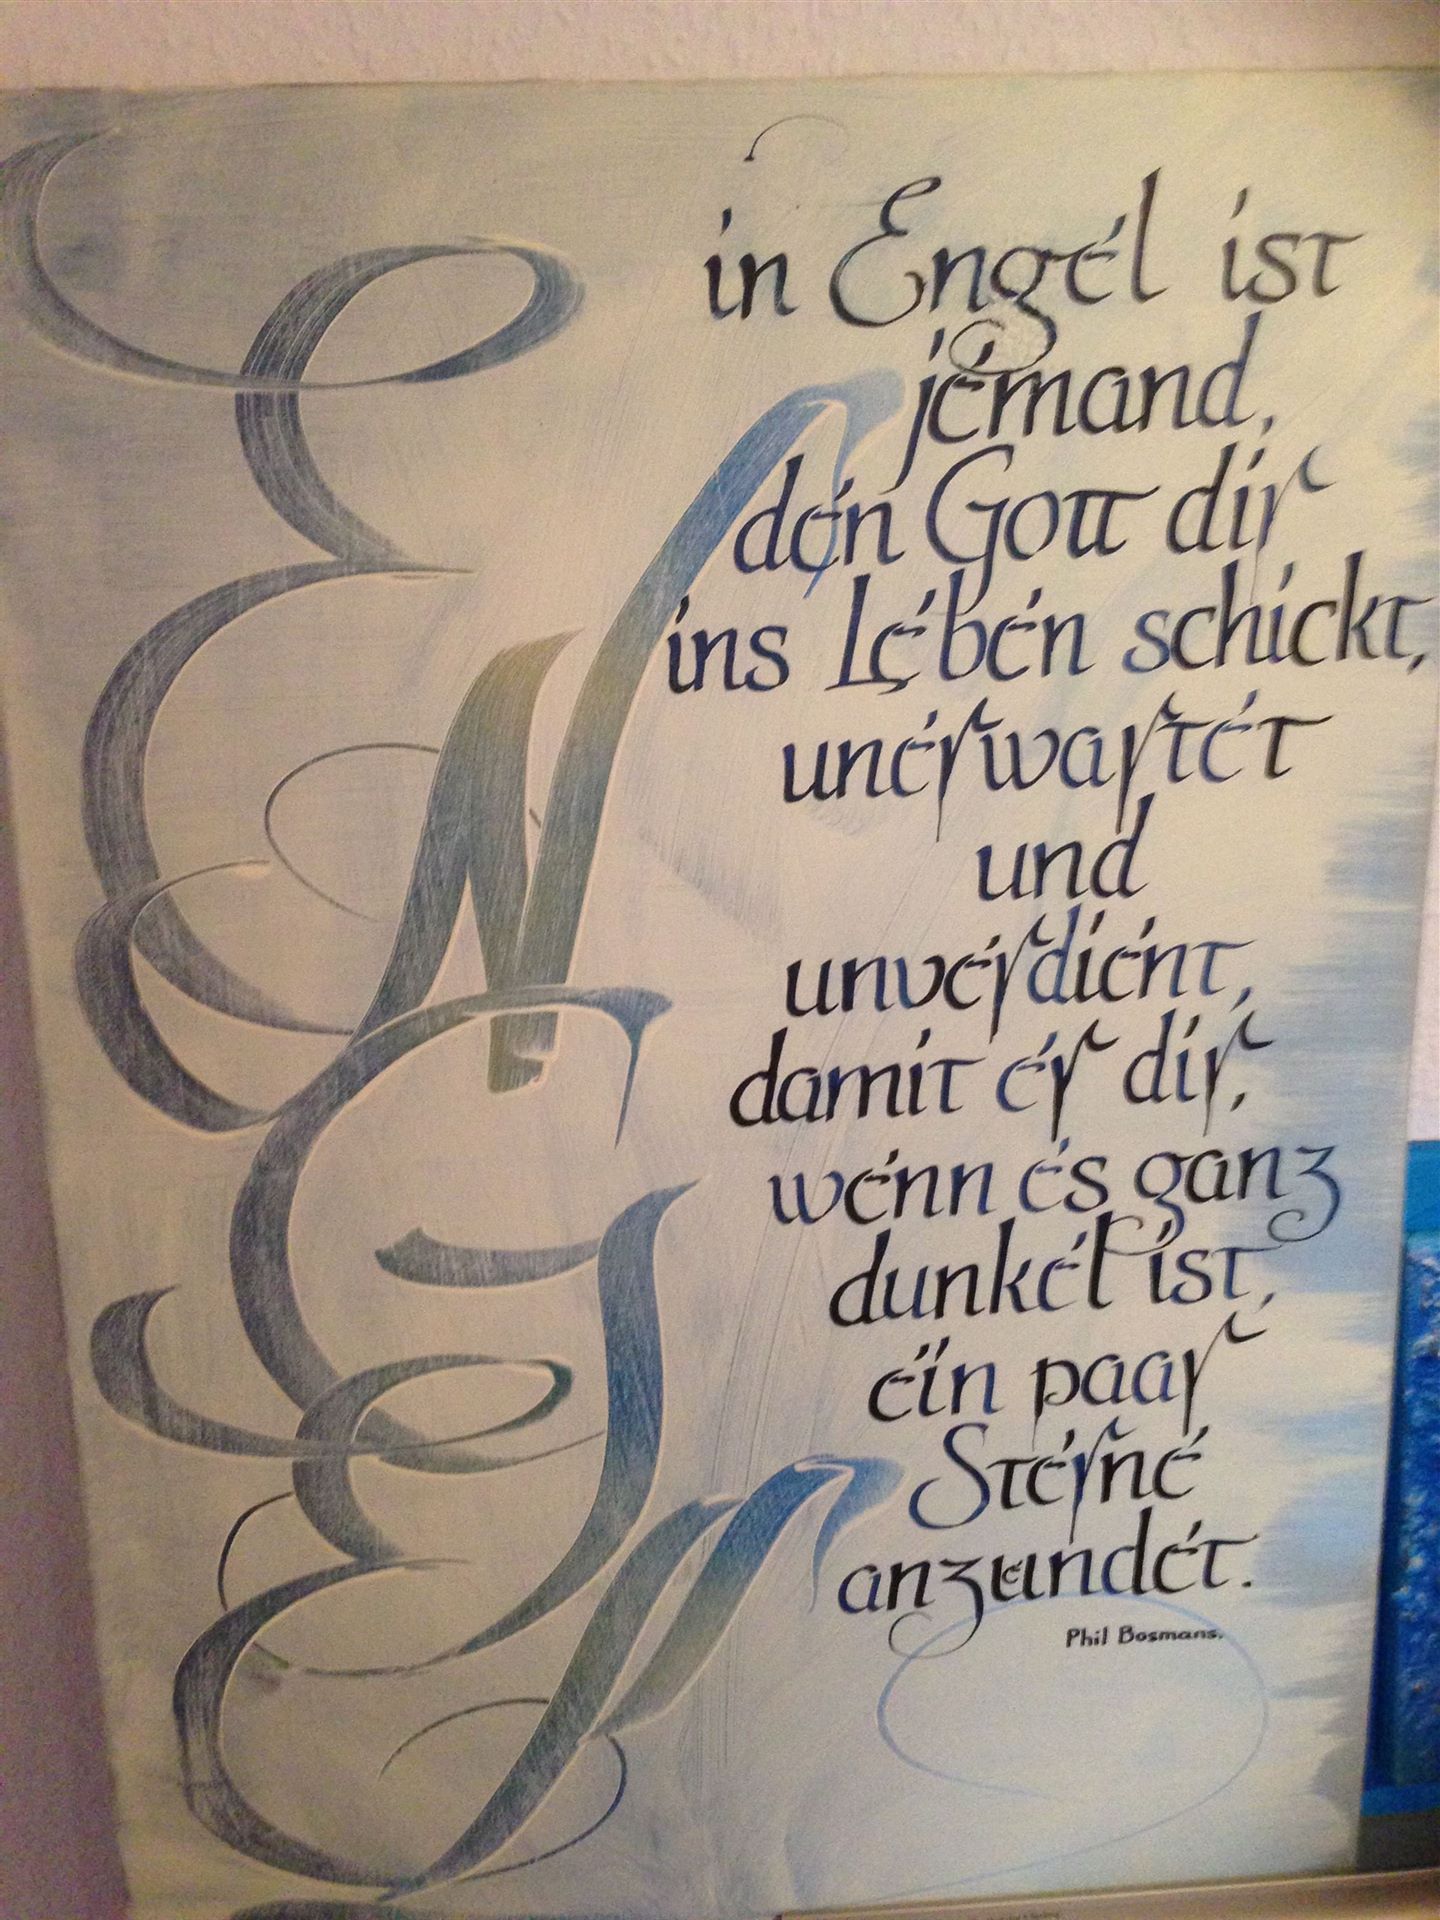 ENGEL
in Engel ist
jemand,
den Gott dir
ins Leben schickt,
unerwartet
und
unverdient,
damit er dir,
wenn es ganz
dunkel ist,
ein paar
Sterne
anzuendet.
Phil Bosmans.